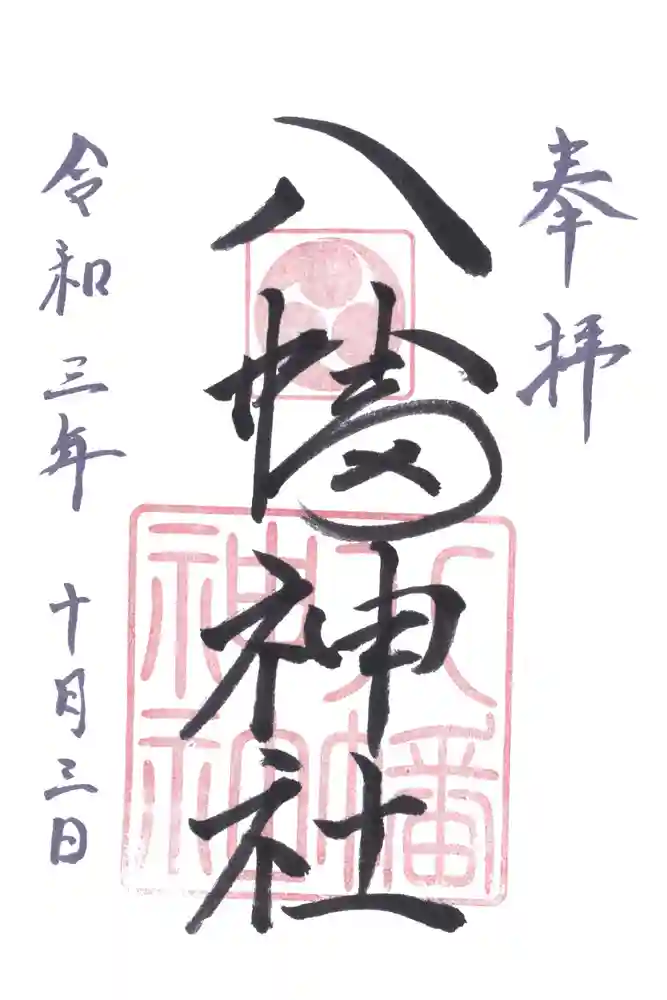 奉拝
八幡神社
八幡
神社
令和三年 十月三日